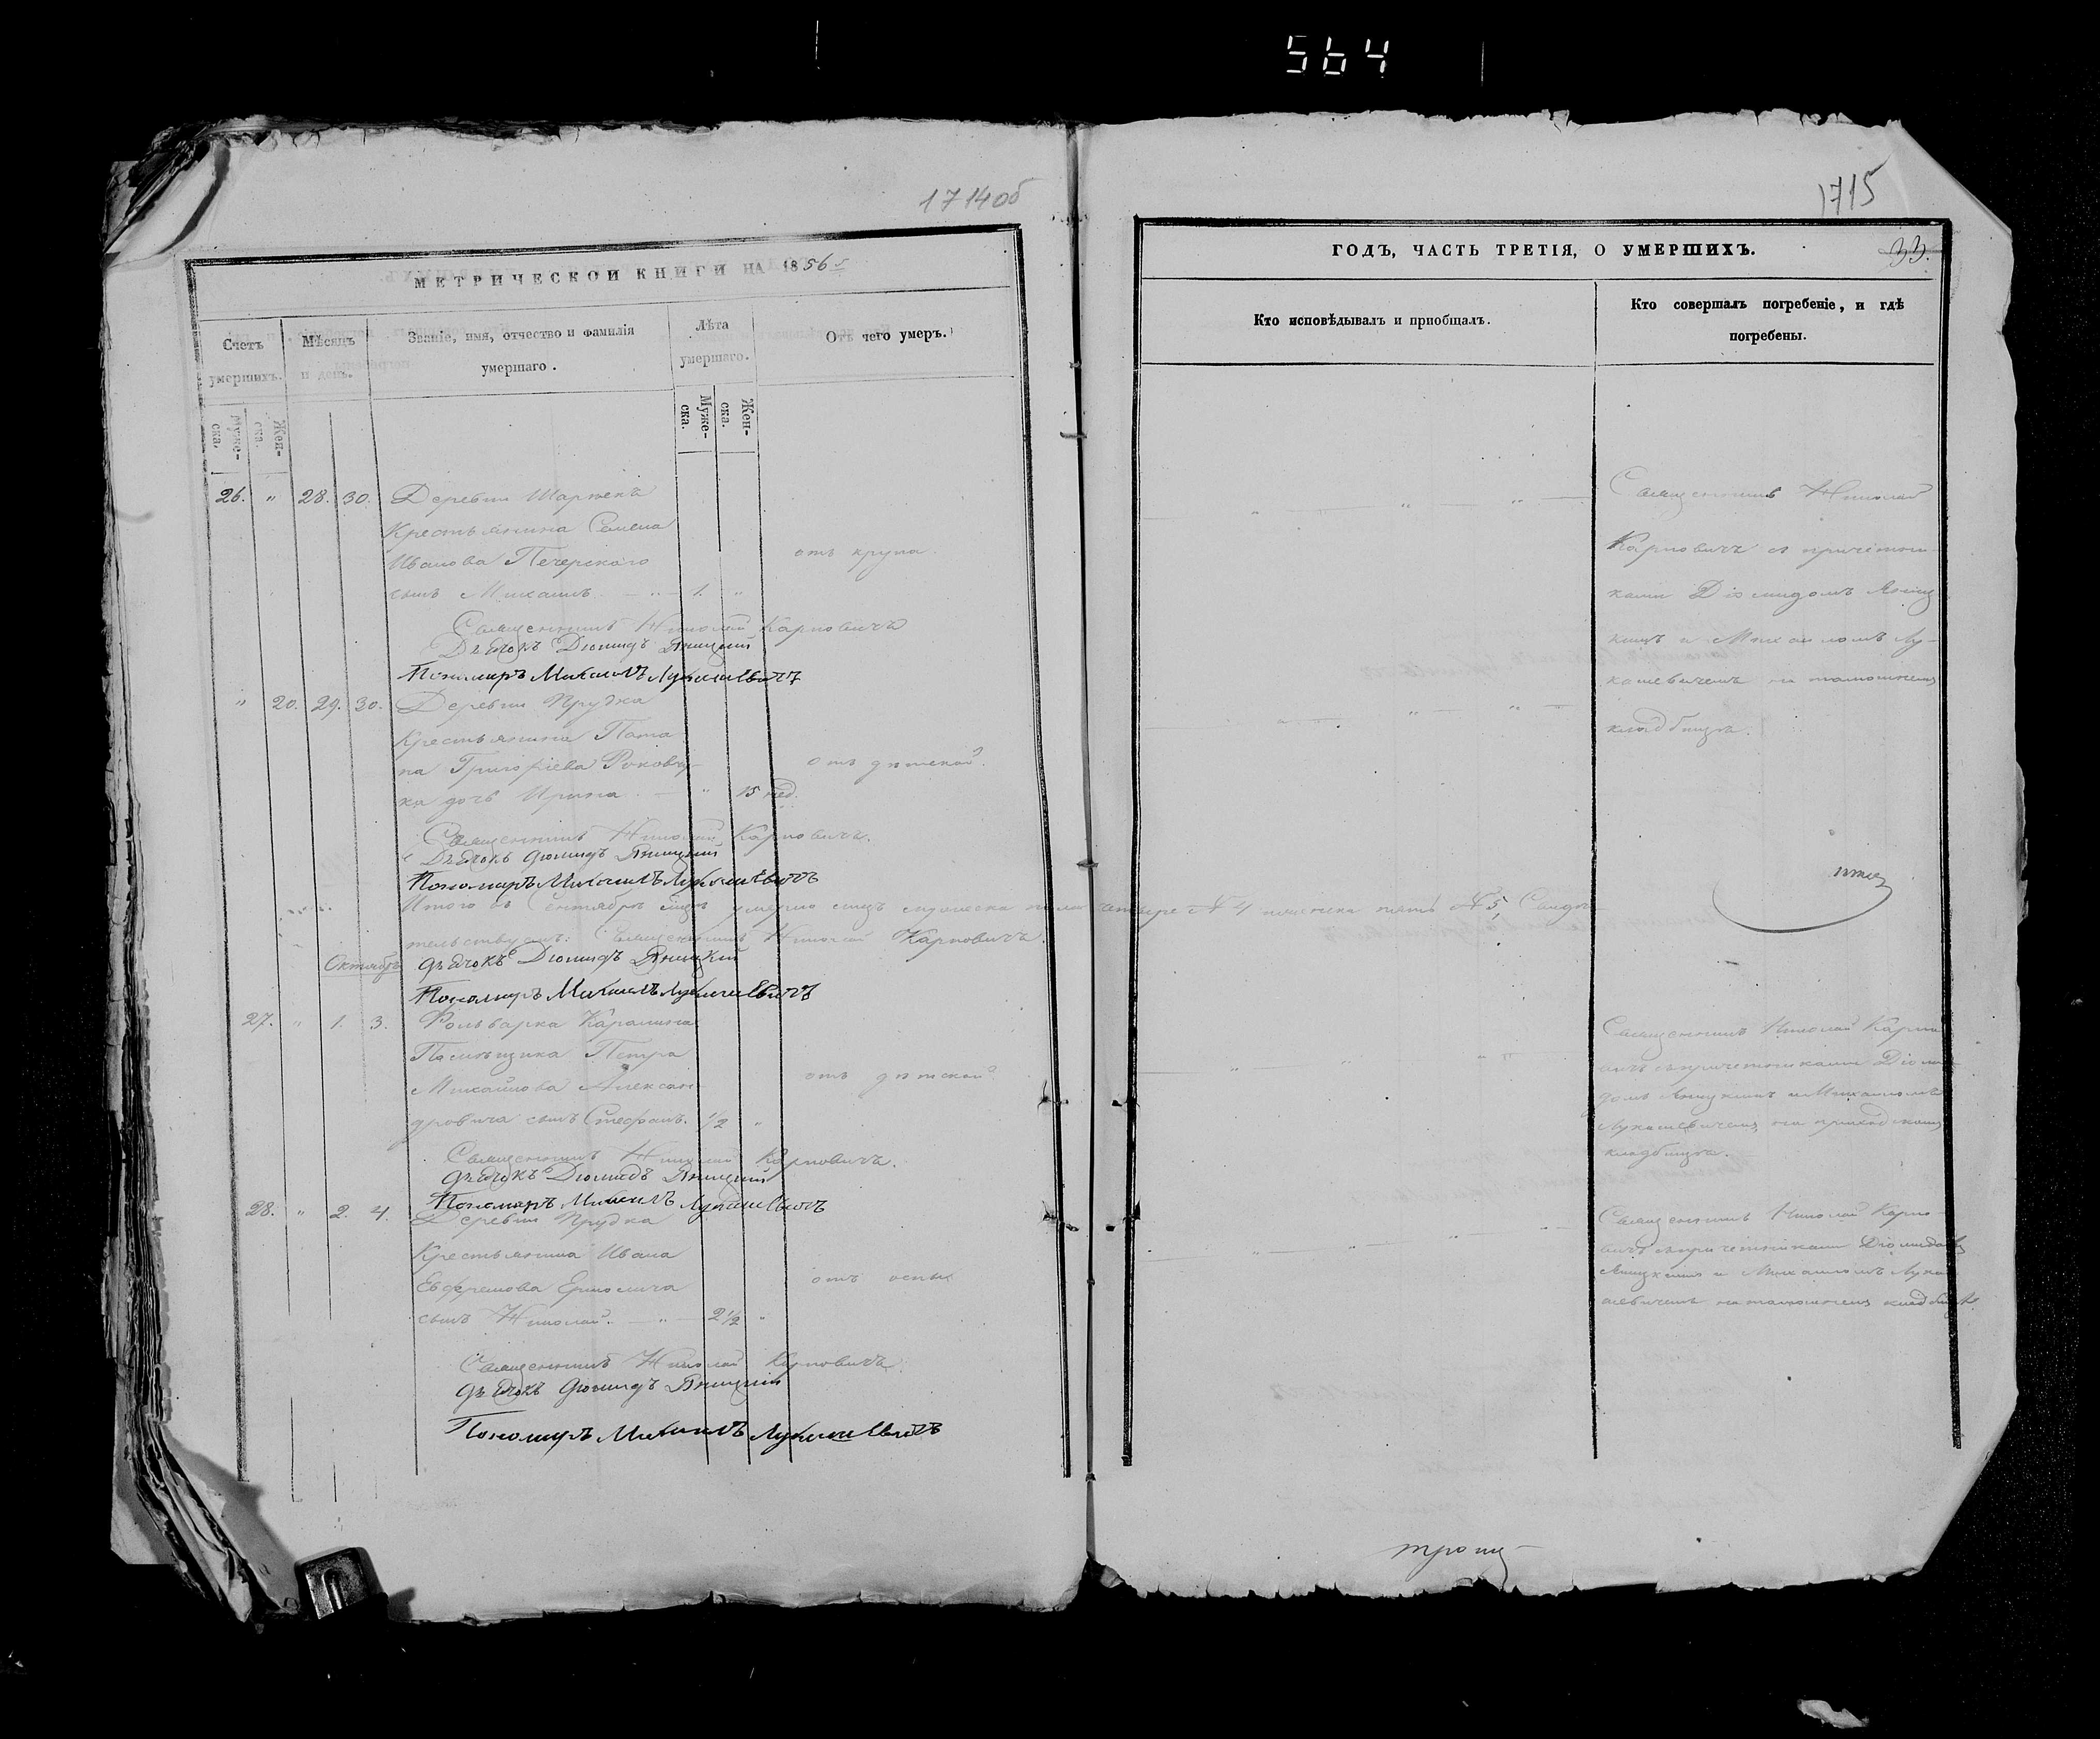 564
1714об
МЕТРИЧЕСКОЙ КНИГИ НА 1856й
Счетъ умершихъ.
Мѣсяцъ и день.
Званіе, имя, отчество и фамилія умершаго.
Лѣта умершаго.
Отъ чего умеръ.
Муже-
ска.
Жен-
ска.
Муже-
ска.
Жен-
ска.
26. " 28. 30. Деревни
Крестьянина Семена
Иванова Печерскаго
отъ крупа.
сынъ Михаилъ — " — 1. "
Священникъ Николай Карповичъ
Дьячокъ Діомидъ Яницкій
Пономаръ Михаилъ Лукашевичъ
" 20. 29. 30. Деревни Прудка
Крестьянина Пота-
па Григоріева
отъ дѣтской.
ка дочь Ирина. — " 15 нед.
Священникъ Николай Карповичъ.
Дьячокъ Діомидъ Яницкій
Пономаръ Михаилъ Лукашевичъ
Итого въ Сентябрѣ умерло мужеска пола четыре № 4 женска пять № 5, Свидѣ-
тельствуемъ: Священникъ Николай Карповичъ.
Октябрь
Дьячокъ Діомидъ Яницкій
Пономаръ Михаилъ Лукашевичъ
27. " 1. 3. Фольварка
Помѣщика Петра
Михайлова Алексан-
отъ дѣтской
дровича сынъ Стефанъ. 1/2 "
Священникъ Николай Карповичъ.
Дьячокъ Діомидъ Яницкій
Пономаръ Михаилъ Лукашевичъ
28. " 2. 4. Деревни Прудка
Крестьянина Ивана
Евфремова
отъ оспы
сынъ Николай. — " — 2 1/2 "
Священникъ Николай Карповичъ.
Дьячокъ Діомидъ Яницкій
Пономаръ Михаилъ Лукашевичъ
1715
ГОДЪ, ЧАСТЬ ТРЕТІЯ, О УМЕРШИХЪ.
33.
Кто исповѣдывалъ и пріобщалъ.
Кто совершалъ погребеніе, и гдѣ
погребены.
Священникъ Николай
Карповичъ съ причетни-
ками Діомидомъ Яниц-
кимъ и Михаиломъ Лу-
кашевичемъ на тамошнемъ
кладбищѣ.
Священникъ Николай Карпо-
вичъ съ причетниками Діоми-
домъ Яницкимъ и Михаиломъ
Лукашевичемъ на приходскомъ
кладбищѣ.
Священникъ Николай Карпо-
вичъ съ причетниками Діомидомъ
Яницкимъ и Михаиломъ Лука-
шевичемъ на тамошнемъ кладбищѣ